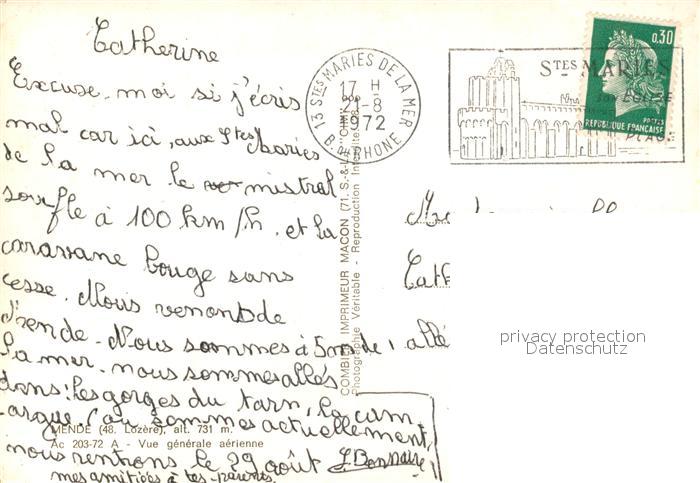 Catherine
Excuse-moi si j'écris
mal car ici, aux Stes Maries
de la mer le mistral
souffle à 100 km/h. et la
caravane bouge sans
cesse. Nous venons de
Mende. Nous sommes à 5m de
la mer. nous sommes allés
dans les gorges du tarn, la cam
argue (où sommes actuellement,
nous rentrons le 29 août J. Bonnaire
mes amitiées à tes parents.
MENDE (48. Lozère), alt. 731 m.
Ac 203-72 A - Vue générale aérienne
COMBIER IMPRIMEUR MACON (71, S.-&-L.) "CIM"
Photographie Véritable - Reproduction Interdite
13 STES MARIES DE LA MER
17 H
-8
1972
B. DU RHONE
STES MARIES
SON EGLISE
PLAGE
0,30
POSTES
REPUBLIQUE FRANÇAISE
Cath
allé
privacy protection
Datenschutz